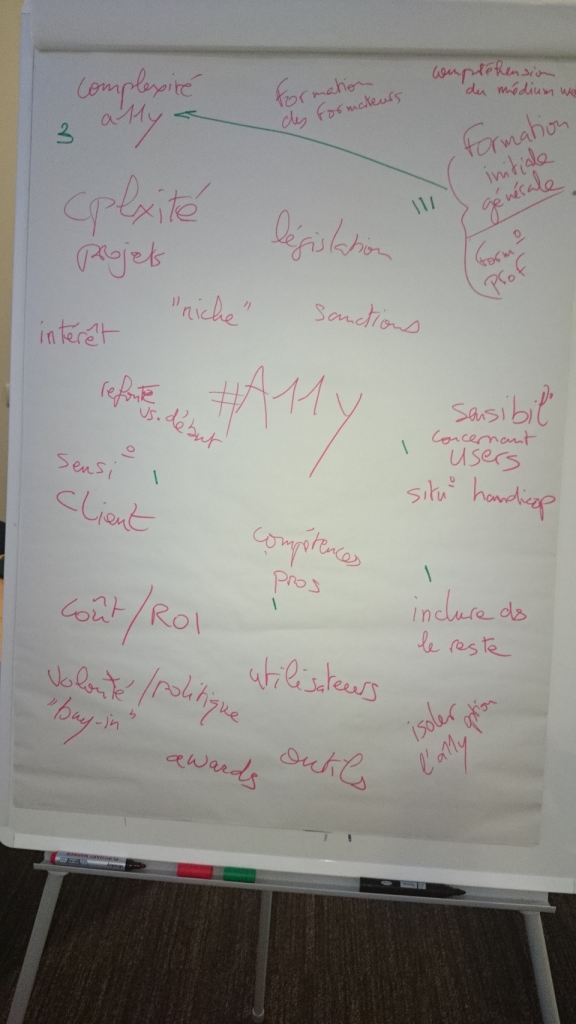 complexité
a11y
3
formation
des formateurs
compréhension
du médium
formation
initiale
générale
form°
prof
III
cplxité
projets
législation
"niche"
sanctions
intérêt
#A11y
refonte
vs. début
sensibil°
concernant
users
situ° handicap
sensi°
client
compétences
pros
inclure ds
le reste
coût/ROI
volonté/politique
"buy-in"
utilisateurs
isoler option
l'a11y
awards
outils